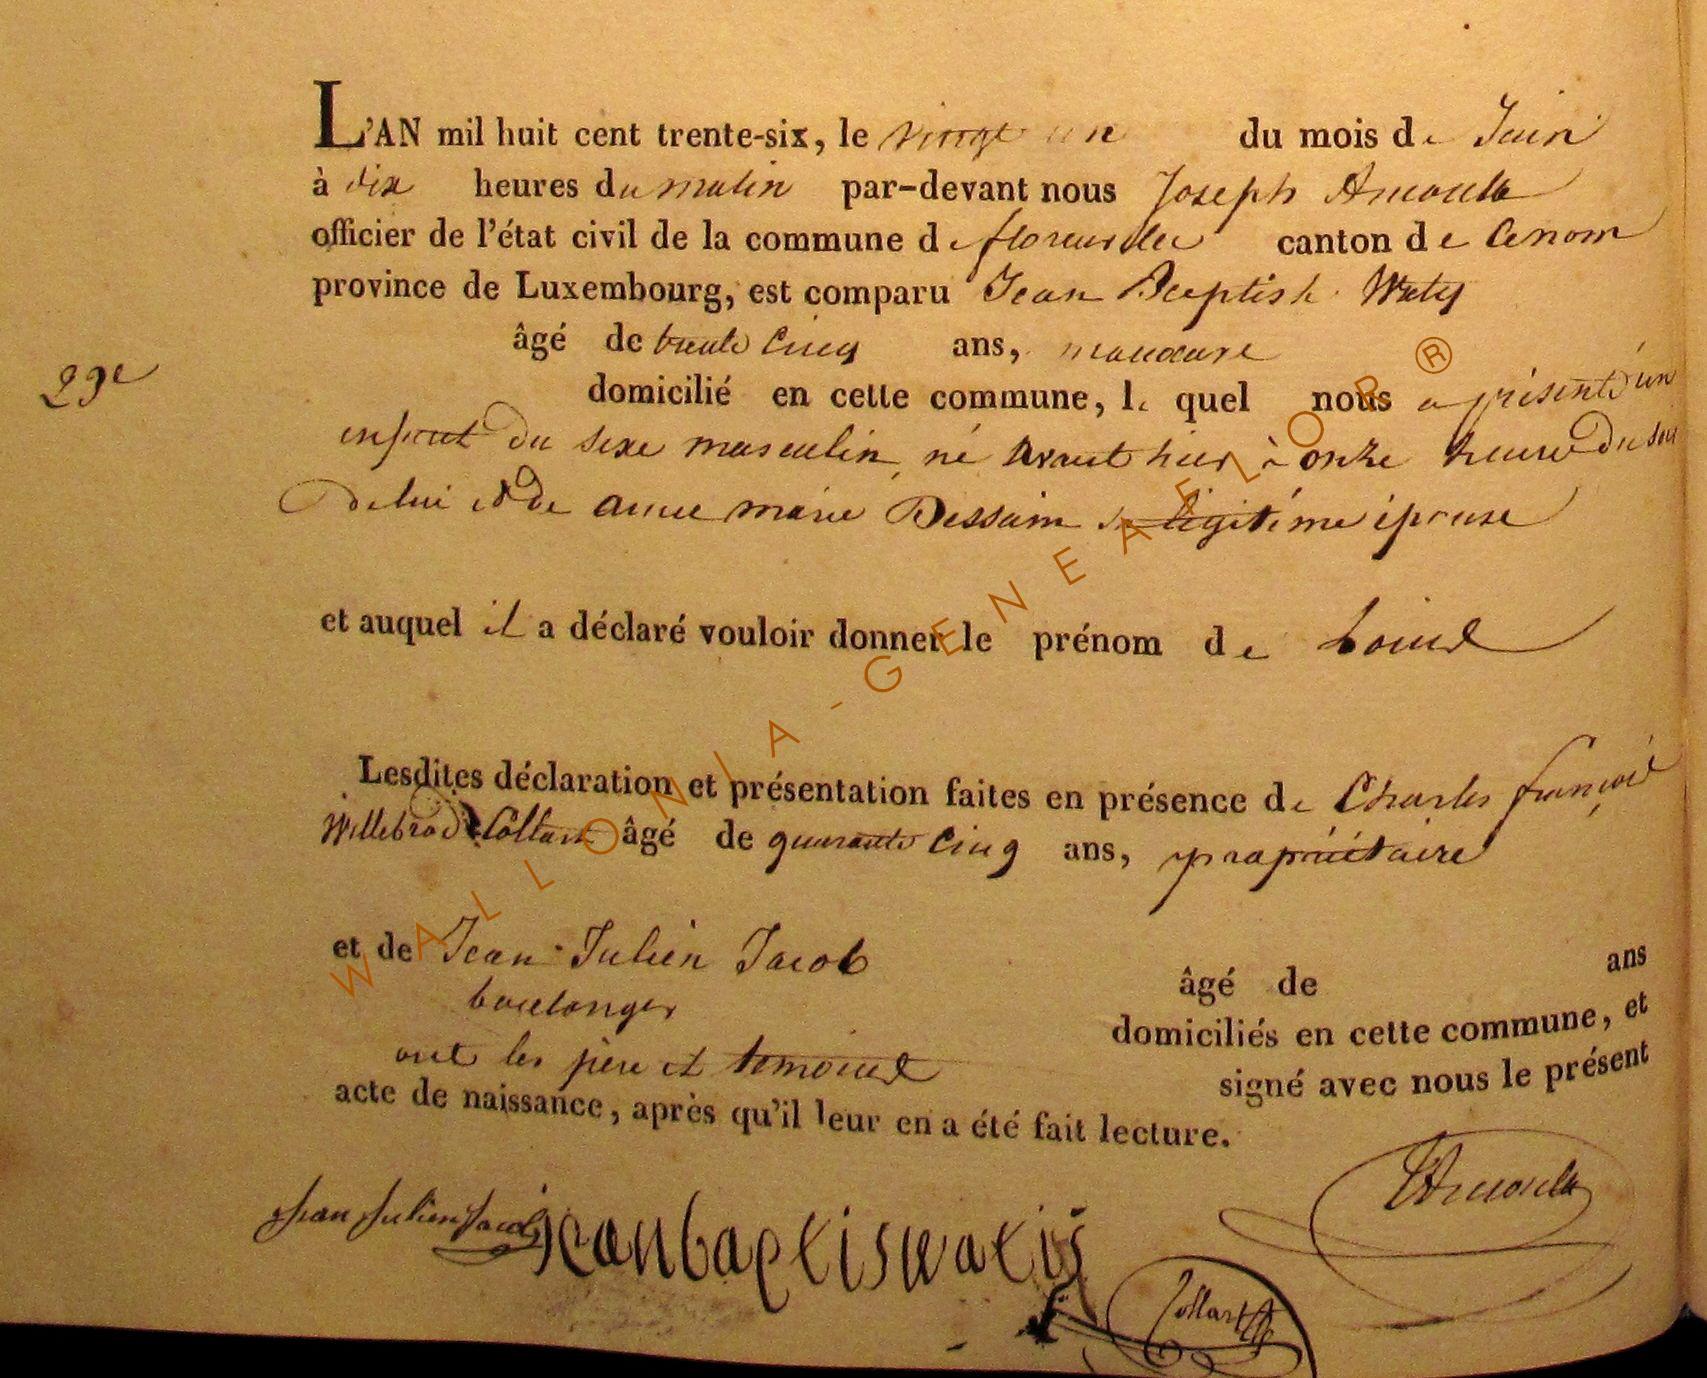 L'AN mil huit cent trente-six, le vingt un du mois de Juin
à dix heures du matin par-devant nous Joseph Arnould
officier de l'état civil de la commune de florenville canton de
province de Luxembourg, est comparu Jean Baptist Waty
âgé de trente cinq ans, manœuvre
29e
domicilié en cette commune, le quel nous a présenté un
enfant du sexe masculin, né avant hier à onze heures du soir
de lui et de anne marie Dessain sa légitime épouse
et auquel il a déclaré vouloir donner le prénom de Louis
Lesdites déclaration et présentation faites en présence de Charles françois
Willebrod Collart âgé de quarante cinq ans, propriétaire
et de Jean Julien Jacob âgé de ans
boulanger domiciliés en cette commune, et
ont les père et témoins signé avec nous le présent
acte de naissance, après qu'il leur en a été fait lecture.
Jean Julien Jacob jeanbaptis watiÿ Arnould
Collart
WALLONIA-GENEAFLOR®